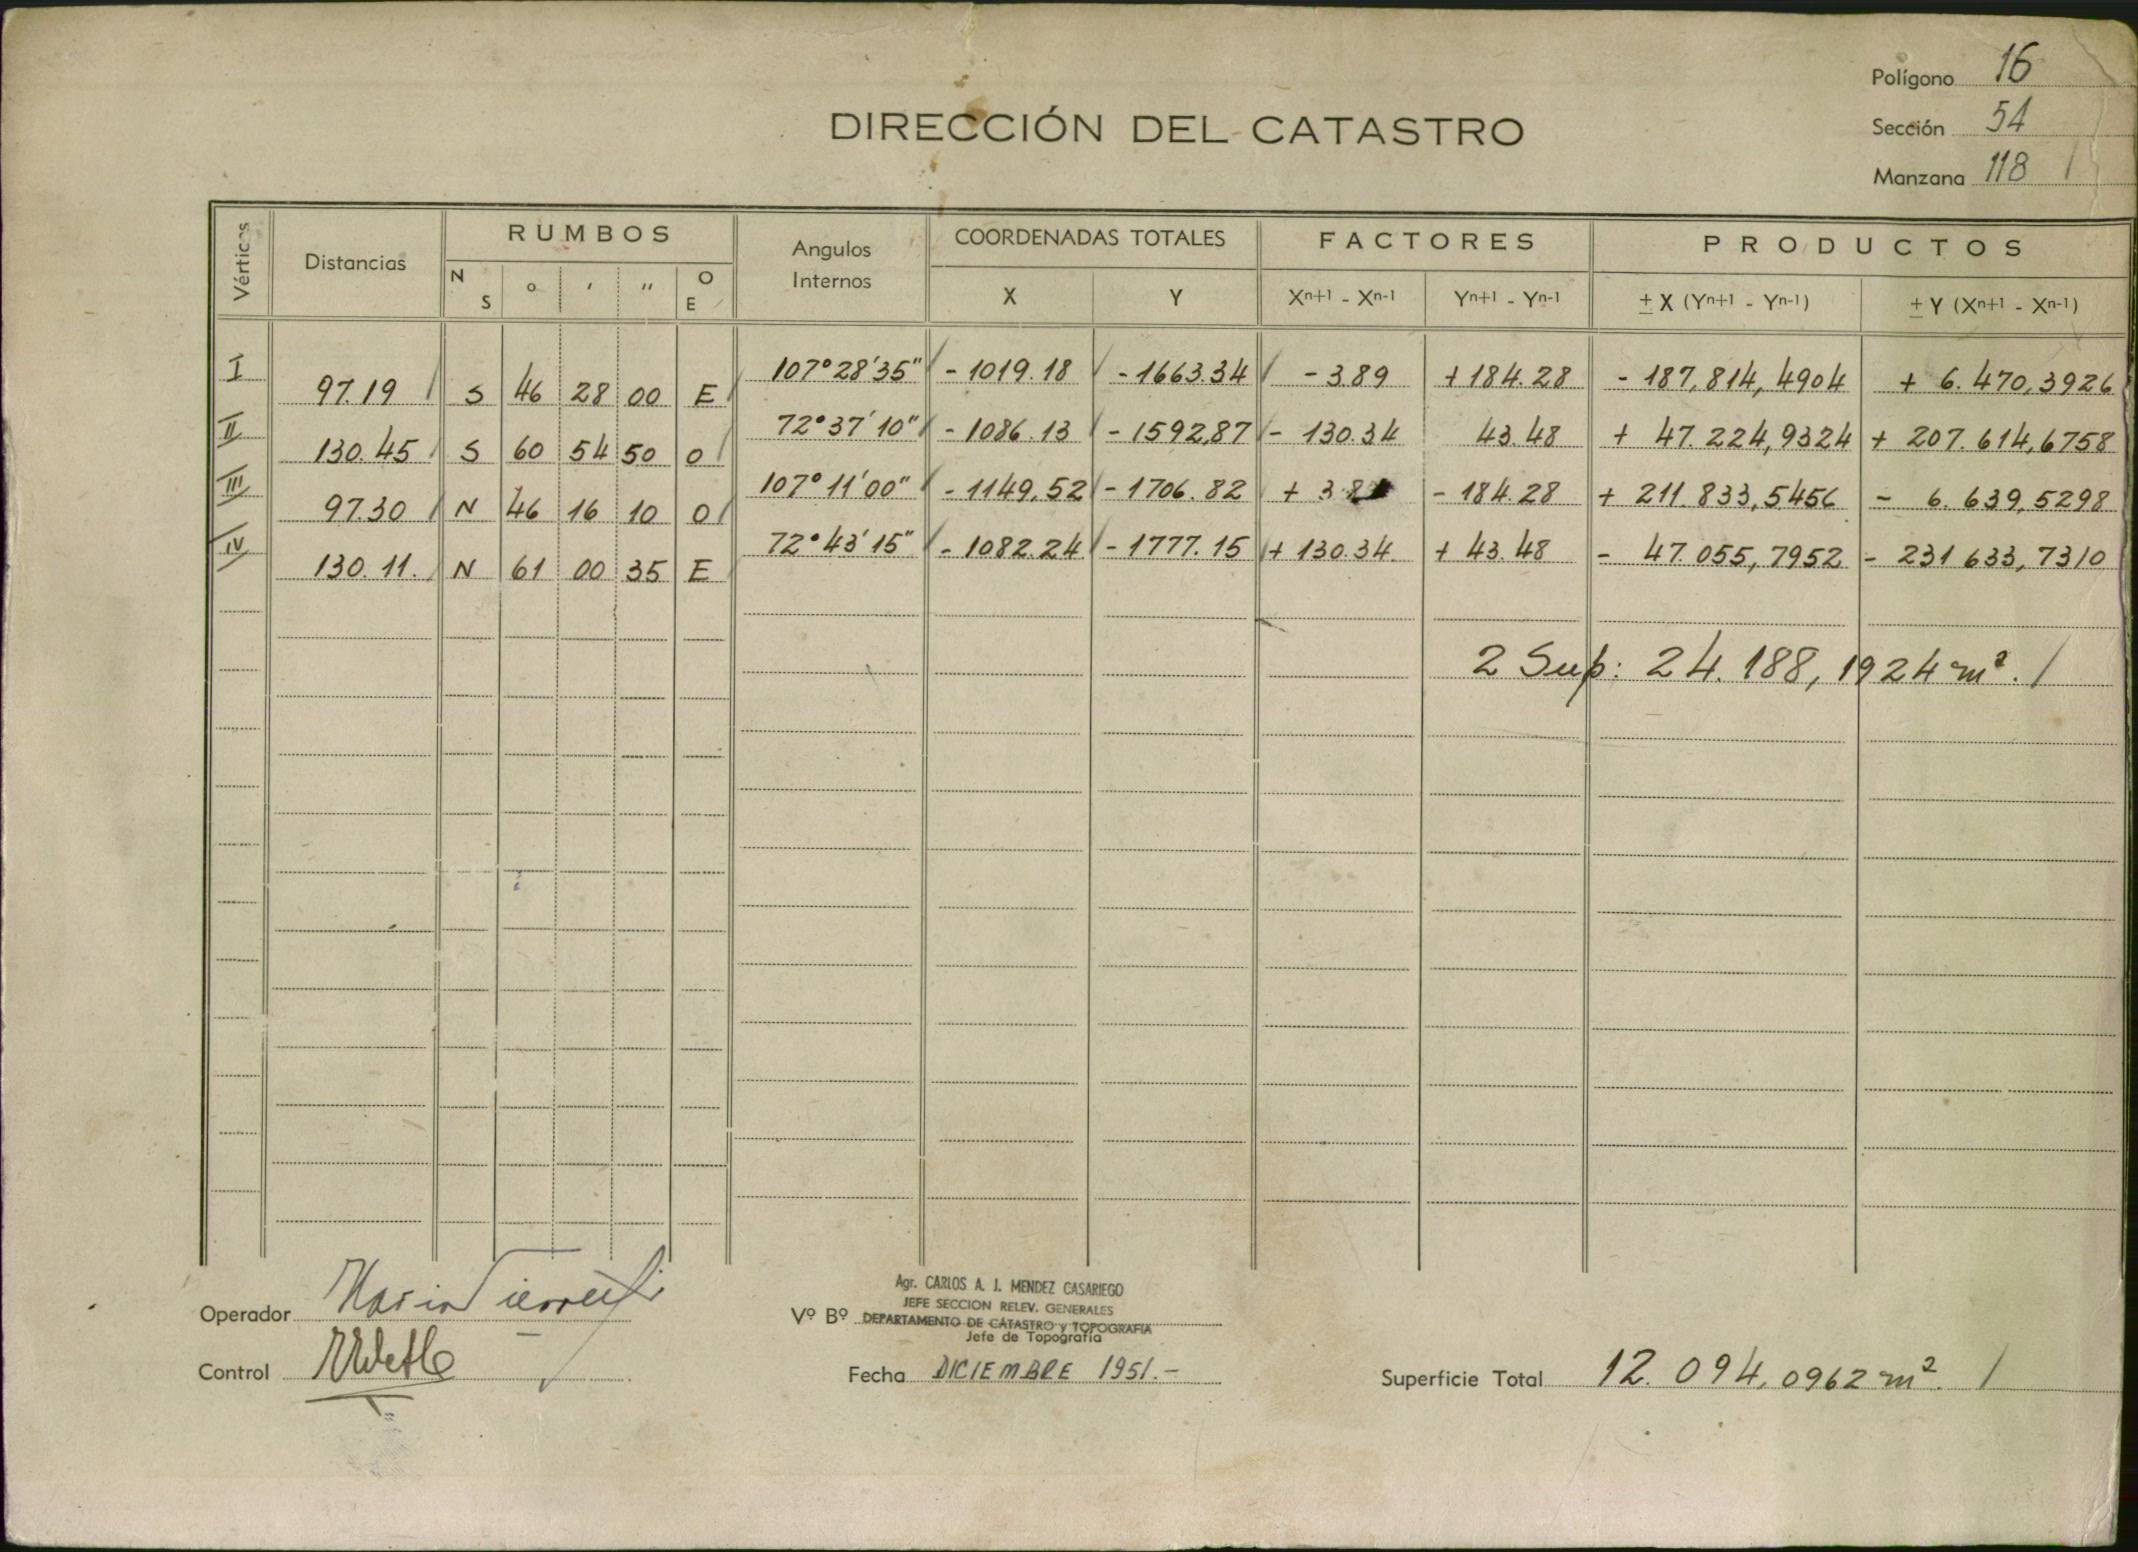 Polígono 16
Sección 54
Manzana 118 /
DIRECCIÓN DEL CATASTRO
Vértices Distancias RUMBOS Angulos Internos COORDENADAS TOTALES FACTORES PRODUCTOS
N S ° ' " O E X Y Xn+1 - Xn-1 Yn+1 - Yn-1 ± X (Yn+1 - Yn-1) ± Y (Xn+1 - Xn-1)
I 107°28'35" / - 1019.18 / - 1663.34 / - 3.89 + 184.28 - 187,814,4904 + 6.470,3926
97.19 / S 46 28 00 E /
II 72°37'10" / - 1086.13 / - 1592,87 / - 130.34 43.48 + 47.224,9324 + 207.614,6758
130.45 / S 60 54 50 O /
III 107°11'00" / - 1149,52 / - 1706.82 + 3.8 - 184.28 + 211.833,5456 - 6.639,5298
97.30 / N 46 16 10 O /
IV 72°43'15" / - 1082.24 / - 1777.15 / + 130.34 + 43.48 - 47.055,7952 - 231 633,7310
130.11. N 61 00 35 E /
2 Sup: 24.188,1924 m². /
Operador
Control
Agr. CARLOS A. J. MENDEZ CASARIEGO
JEFE SECCION RELEV. GENERALES
Vº Bº DEPARTAMENTO DE CATASTRO y TOPOGRAFIA
Jefe de Topografía
Fecha DICIEMBRE 1951.-
Superficie Total 12.094,0962 m². /